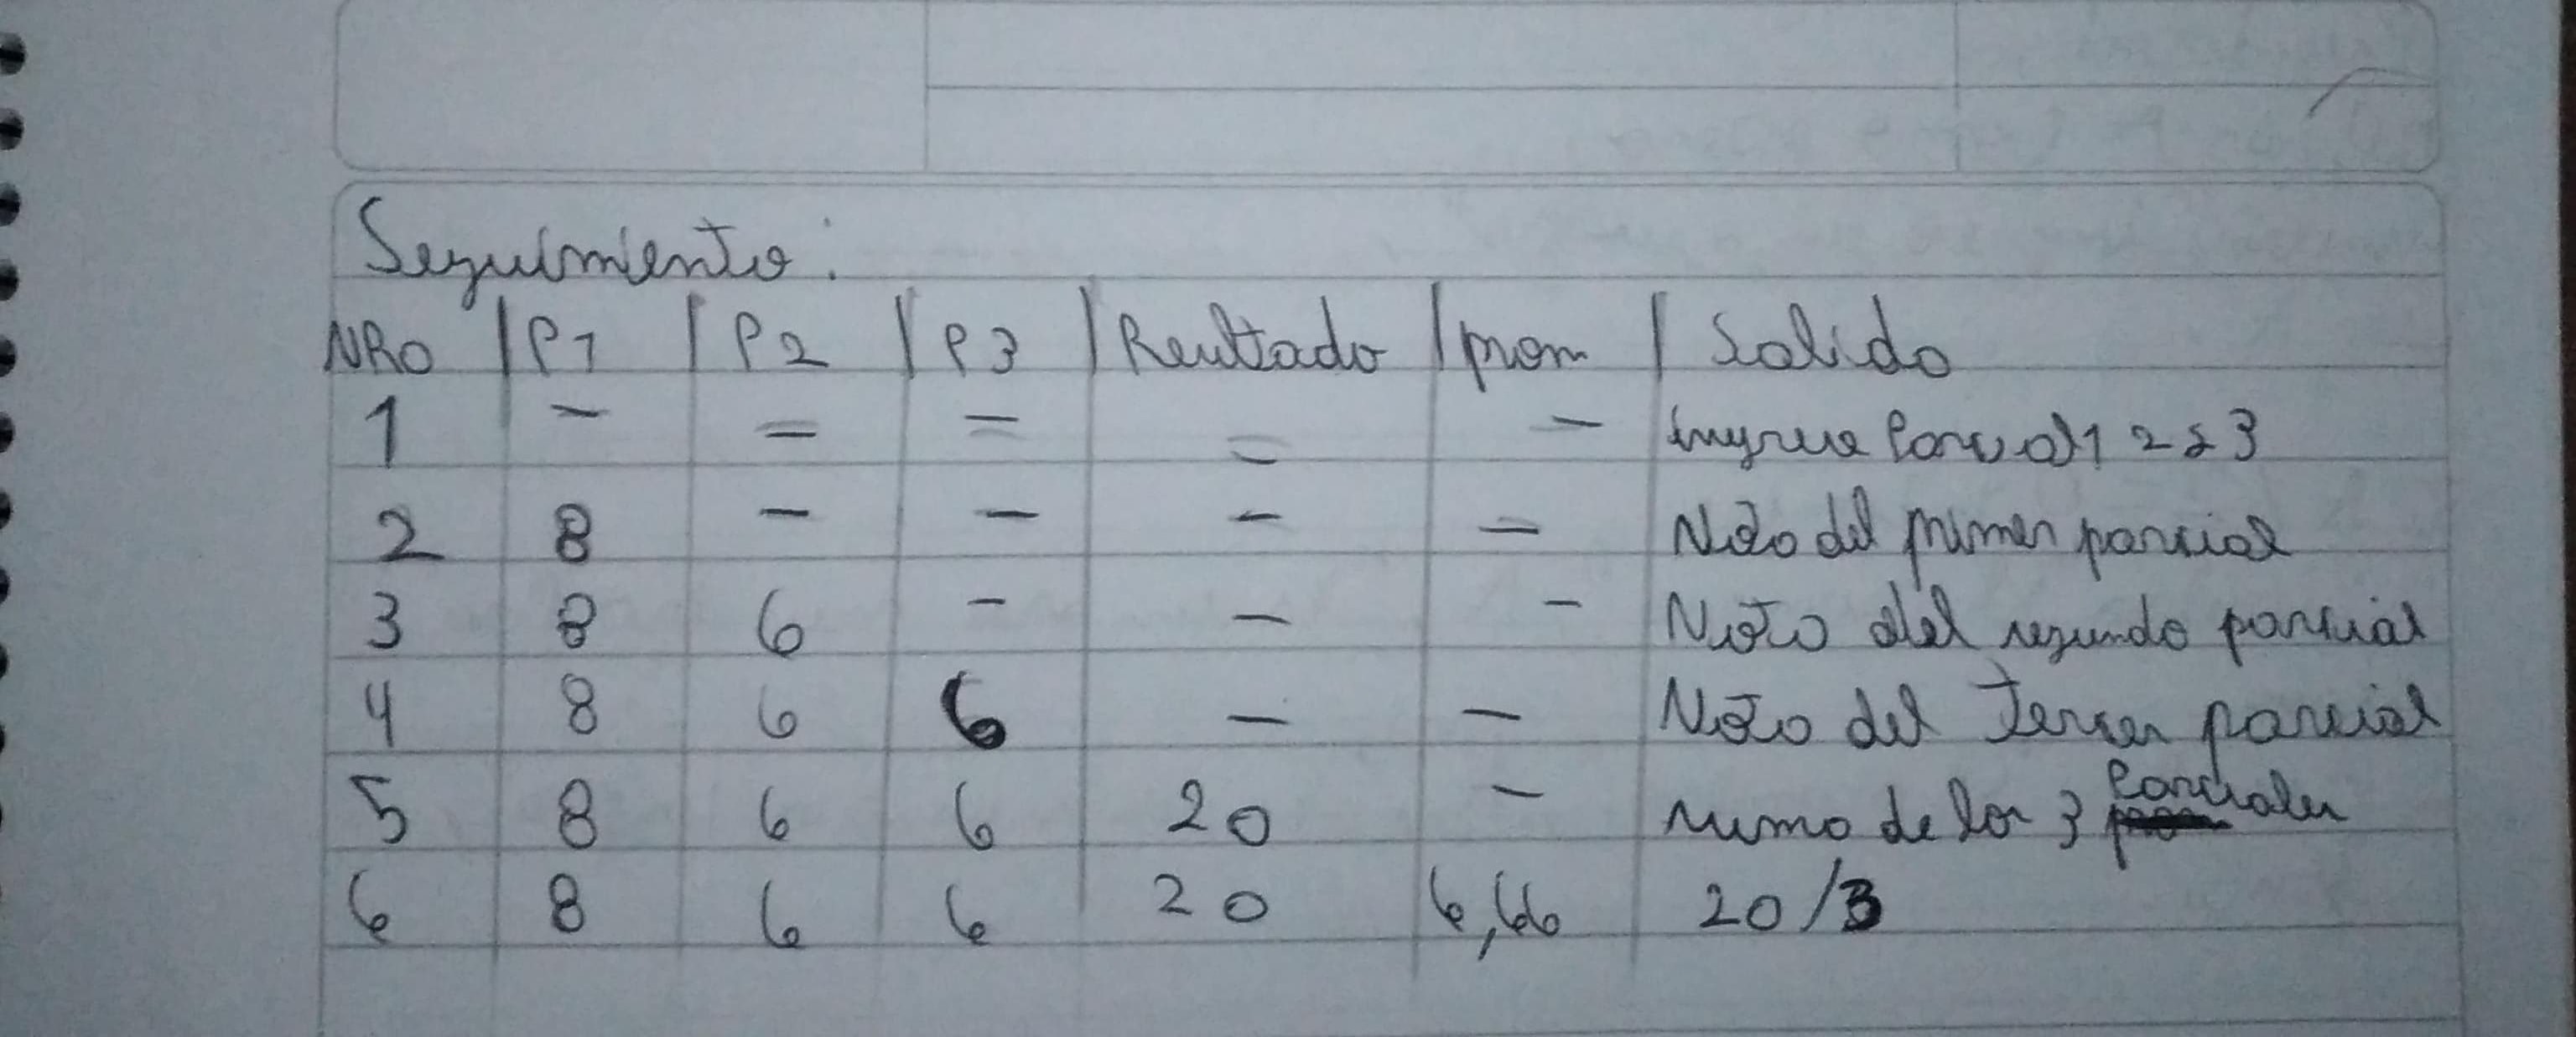 Seguimiento:
NRO | P1 | P2 | P3 | Reultado | prom | Salida
1 - - = = - ingrese Parcial 1 2 y 3
2 8 - - - - Nota del primer parcial
3 8 6 - - - Nota del segundo parcial
4 8 6 6 - - Nota del Tercer parcial
5 8 6 6 20 - suma de los 3 Parciales
6 8 6 6 20 6,66 20/3